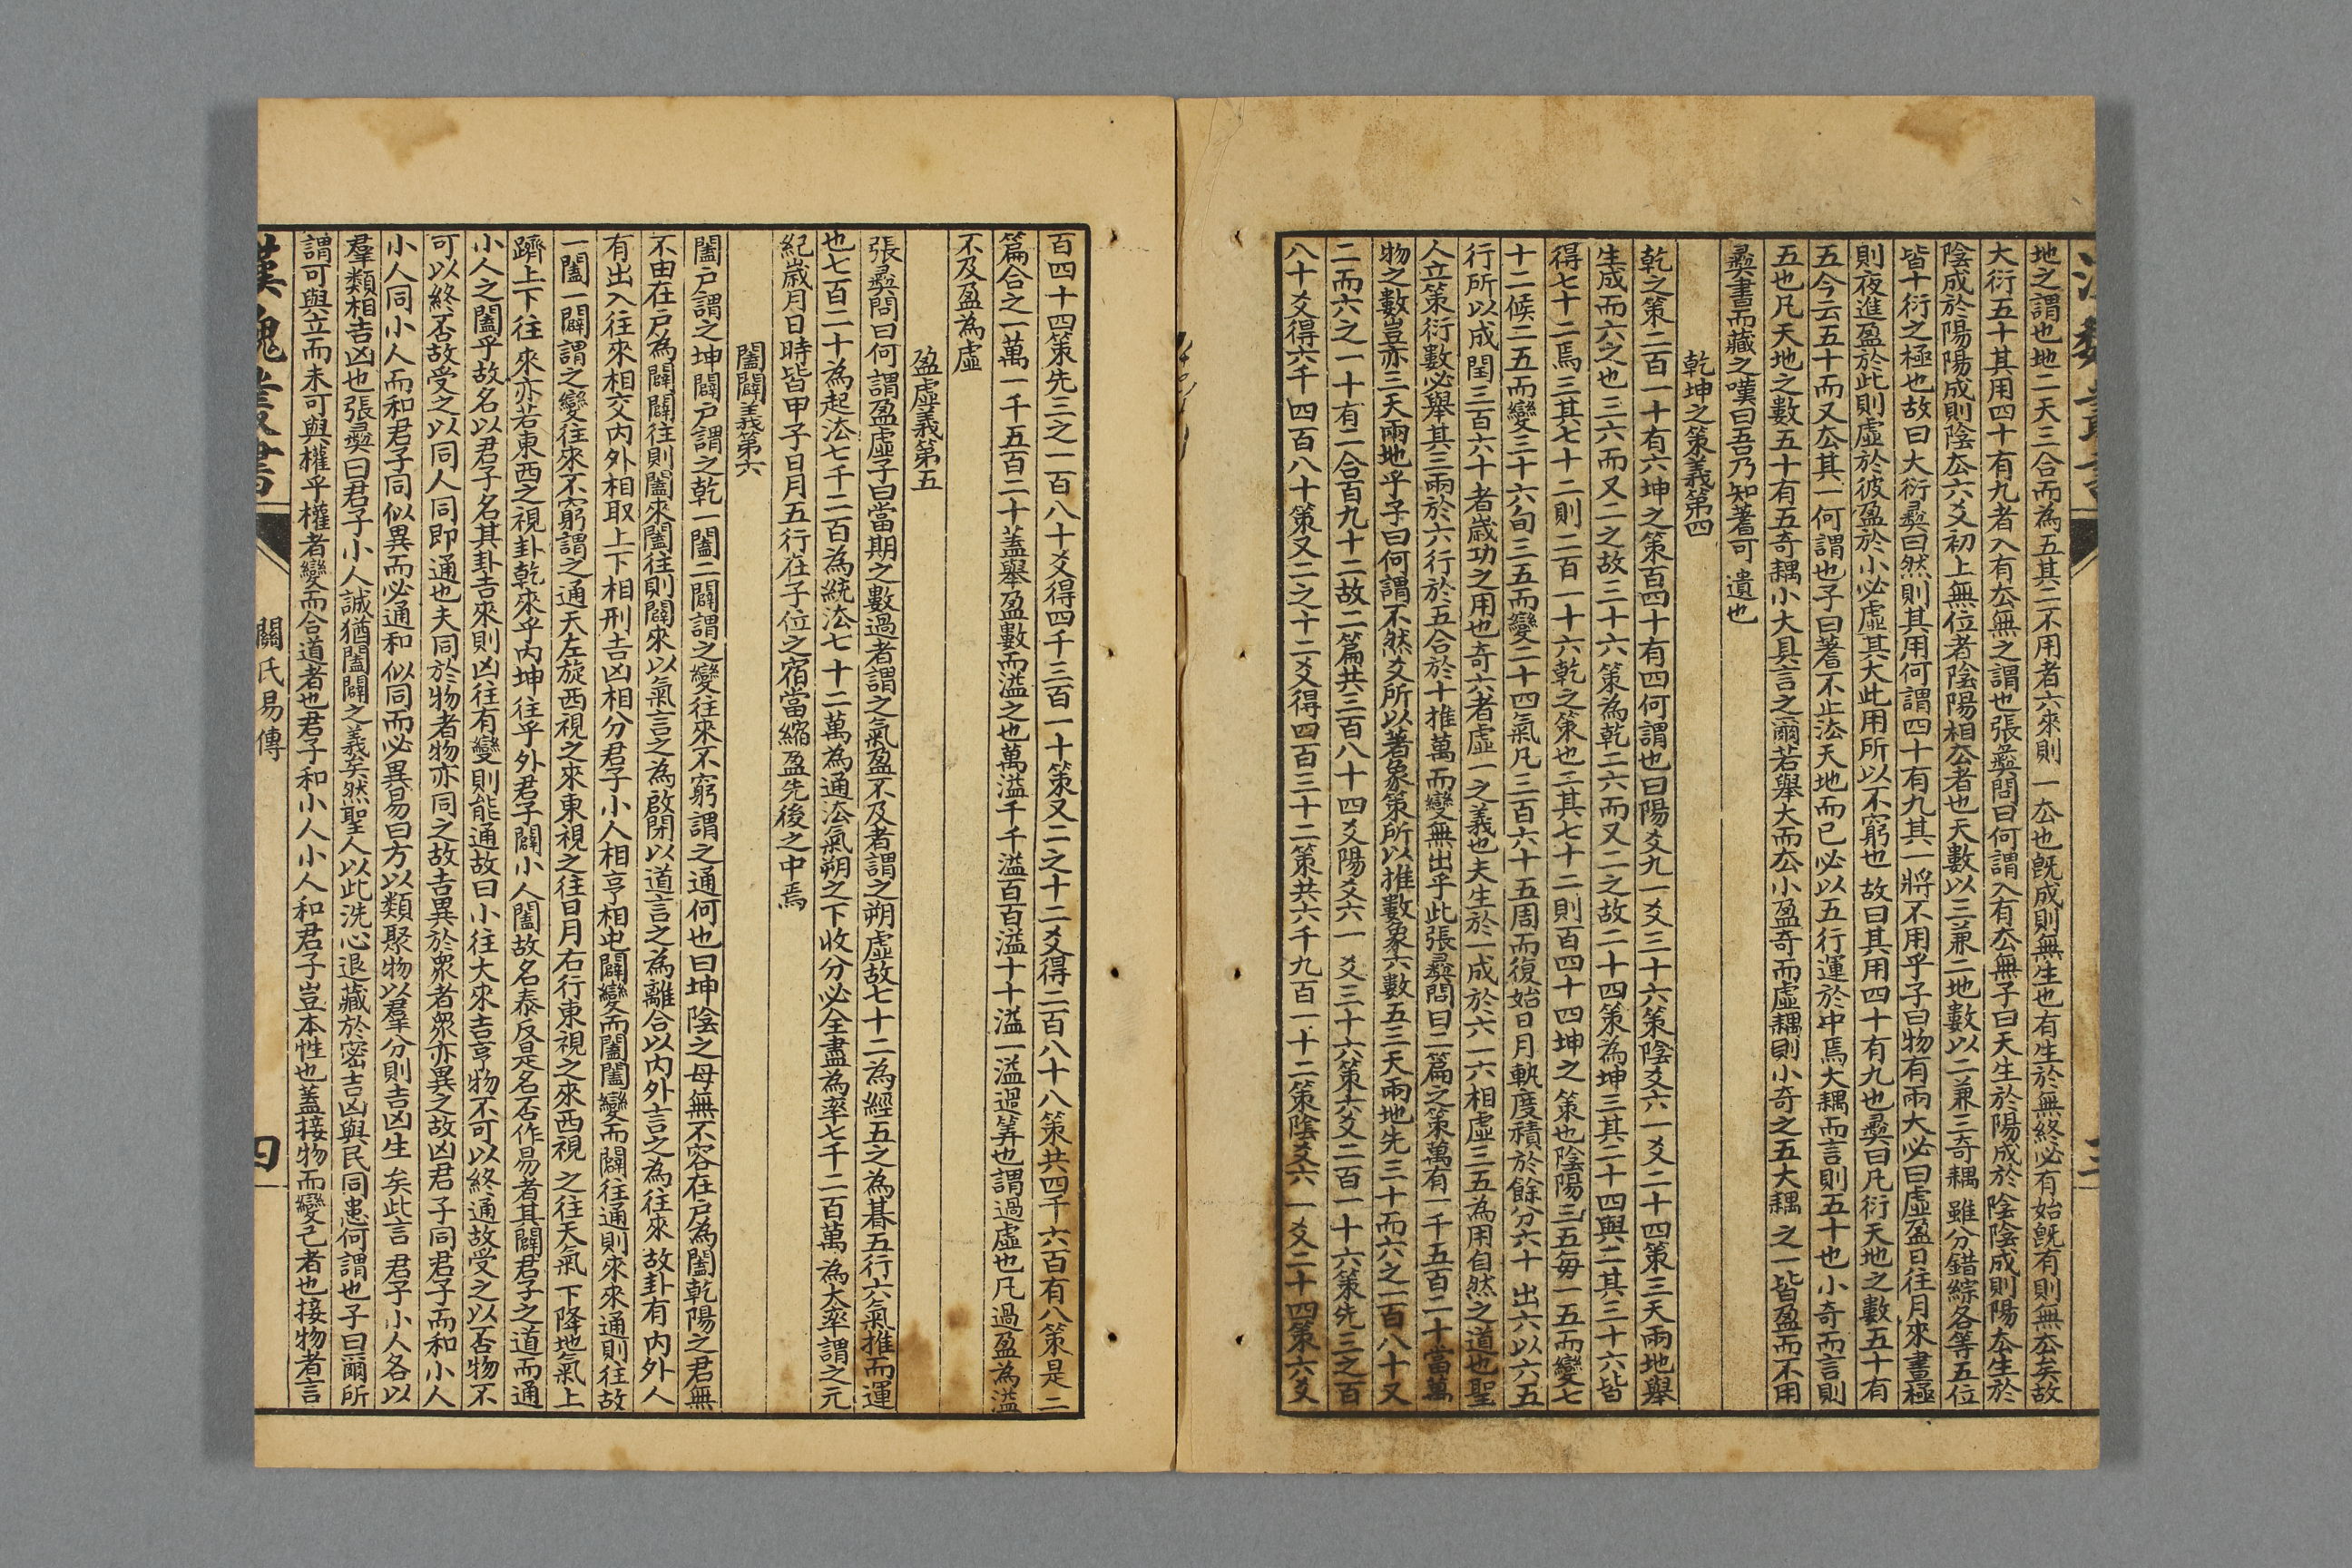 漢魏叢書
三
地之謂也地二天三合而為五其二不用者六來則一厺也既成則無生也有生於無終必有始既有則無厺矣故
大衍五十其用四十有九者入有厺無之謂也張彝問曰何謂入有厺無子曰天生於陽成於陰陰成則陽厺生於
陰成於陽陽成則陰厺六爻初上無位者陰陽相厺者也天數以三兼二地數以二兼三奇耦雖分錯綜各等五位
皆十衍之極也故曰大衍彝曰然則其用何謂四十有九其一將不用乎子曰物有兩大必曰虛盈日往月來晝極
則夜進盈於此則虛於彼盈於小必虛其大此用所以不窮也故曰其用四十有九也彝曰凡衍天地之數五十有
五今云五十而又厺其一何謂也子曰蓍不止法天地而已必以五行運於中焉大耦而言則五十也小奇而言則
五也凡天地之數五十有五奇耦小大具言之爾若舉大而厺小盈奇而虛耦則小奇之五大耦之一皆盈而不用
彝書而藏之嘆曰吾乃知蓍可遺也
乾坤之策義第四
乾之策二百一十有六坤之策百四十有四何謂也曰陽爻九一爻三十六策陰爻六一爻二十四策三天兩地舉
生成而六之也三六而又二之故三十六策為乾二六而又二之故二十四策為坤三其二十四與二其三十六皆
得七十二焉三其七十二則二百一十六乾之策也二其七十二則百四十四坤之策也陰陽三五每一五而變七
十二候二五而變三十六旬三五而變二十四氣凡三百六十五周而復始日月軌度積於餘分六十出六以六五
行所以成閏三百六十者歲功之用也奇六者虛一之義也夫生於一成於六一六相虛三五為用自然之道也聖
人立策衍數必舉其三兩於六行於五合於十推萬而變無出乎此張彝問曰二篇之策萬有一千五百二十當萬
物之數豈亦三天兩地乎子曰何謂不然爻所以著象策所以推數象六數五三天兩地先三十而六之一百八十又
二而六之一十有二合百九十二故二篇共三百八十四爻陽爻六一爻三十六策六爻二百一十六策先三之百
八十爻得六千四百八十策又二之十二爻得四百三十二策共六千九百一十二策陰爻六一爻二十四策六爻
百四十四策先三之一百八十爻得四千三百一十策又二之十二爻得二百八十八策共四千六百有八策是二
篇合之一萬一千五百二十蓋舉盈數而溢之也萬溢千千溢百百溢十十溢一溢過筭也謂過虛也凡過盈為溢
不及盈為虛
盈虛義第五
張彝問曰何謂盈虛子曰當期之數過者謂之氣盈不及者謂之朔虛故七十二為經五之為朞五行六氣推而運
也七百二十為起法七千二百為統法七十二萬為通法氣朔之下收分必全盡為率七千二百萬為大率謂之元
紀歲月日時皆甲子日月五行在子位之宿當縮盈先後之中焉
闔闢義第六
闔戶謂之坤闢戶謂之乾一闔二闢謂之變往來不窮謂之通何也曰坤陰之母無不容在戶為闔乾陽之君無
不由在戶為闢闢往則闔來闔往則闢來以氣言之為啟閉以道言之為離合以內外言之為往來故卦有內外人
有出入往來相交內外相取上下相刑吉凶相分君子小人相亨相屯闢變而闔闔變而闢往通則來來通則往故
一闔一闢謂之變往來不窮謂之通天左旋西視之來東視之往日月右行東視之來西視之往天氣下降地氣上
躋上下往來亦若東西之視卦乾來乎內坤往乎外君子闢小人闔故名泰反是名否作易者其闢君子之道而通
小人之闔乎故名以君子名其卦吉來則凶往有變則能通故曰小往大來吉亨物不可以終通故受之以否物不
可以終否故受之以同人同即通也夫同於物者物亦同之故吉異於眾者眾亦異之故凶君子同君子而和小人
小人同小人而和君子同似異而必通和似同而必異易曰方以類聚物以羣分則吉凶生矣此言君子小人各以
羣類相吉凶也張彝曰君子小人誠猶闔闢之義矣然聖人以此洗心退藏於密吉凶與民同患何謂也子曰爾所
謂可與立而未可與權乎權者變而合道者也君子和小人小人和君子豈本性也蓋接物而變己者也接物者言
漢魏叢書
關氏易傳
四